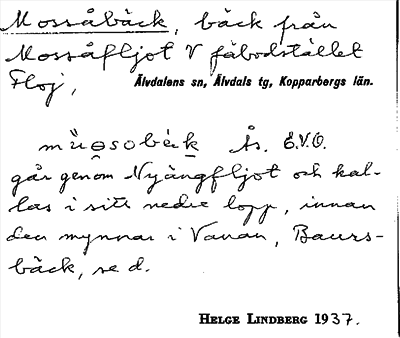 Mossåbäck, bäck från
Mossåfljot V fäbodstället
Floj, Älvdalens sn, Älvdals tg, Kopparbergs län.
Ås. E.V.O.
går genom Nyängfljot och kal-
las i sitt nedre lopp, innan
den mynnar i Vanan, Baurs-
bäck, se d.
HELGE LINDBERG 1937.